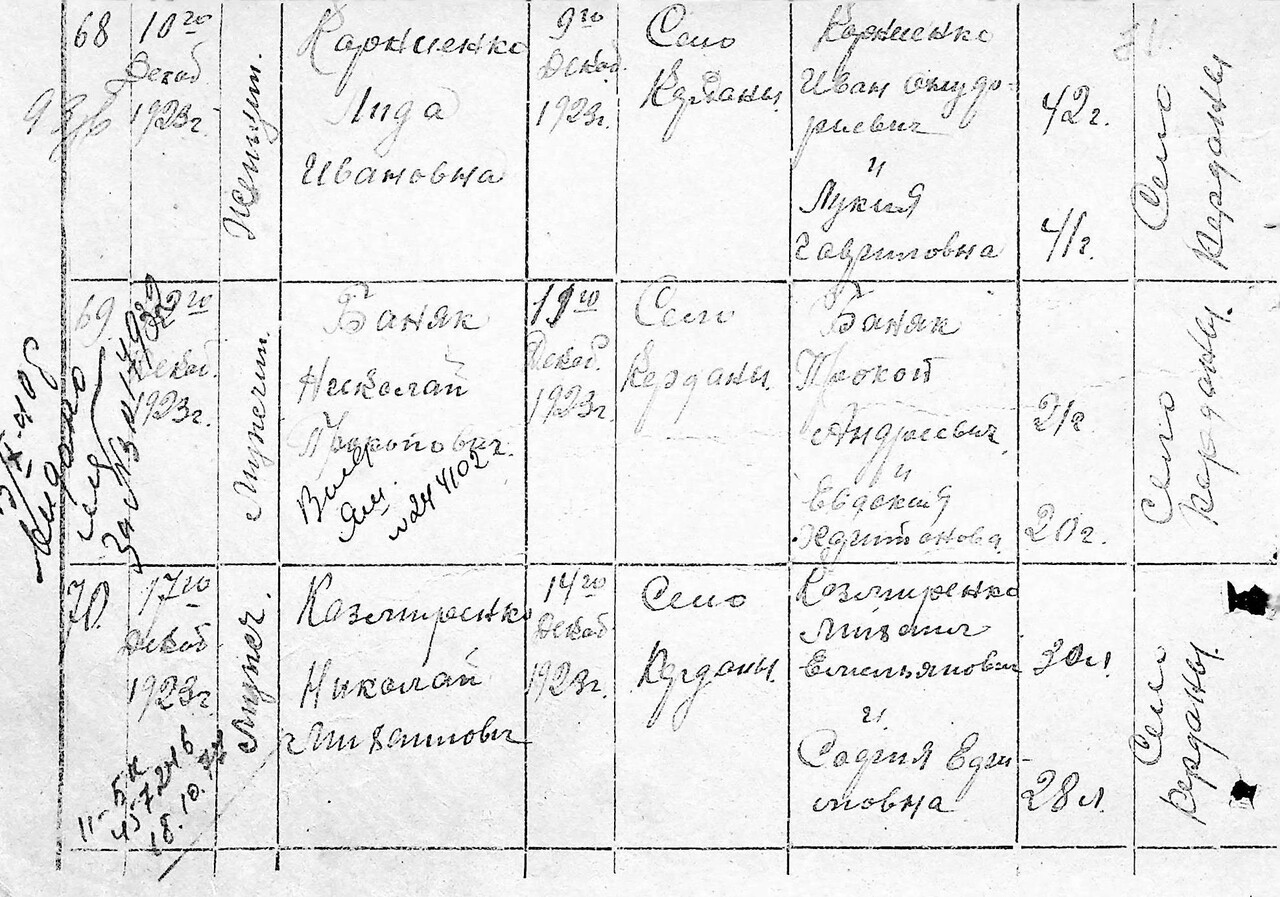 68
10го
Декаб
1923г.
Женщин.
Корниенко
Лида
Ивановна
9го
Декаб.
1923г.
Село
Керданы
Корниенко
Иван
риевич
и
Лукия
Гавриловна
42г.
41г.
Село
Керданы
69
Декаб.
1923г.
Мужчин.
Баняк
Николай
Прокопович.
№244102
19го
Декаб.
1923г.
Село
Керданы.
Баняк
Прокоп
Андреевич
и
Евдокия
21г
20г.
Село
Керданы.
70.
17го
Декаб
1923г
Мужч.
Казмиренко
Николай
Михайлович
14го
Декаб
1923г.
Село
Керданы.
Казмиренко
Михаил
Емельянович
и
София
мовна
30л.
28л.
Село
Керданы.
457246
18.10.